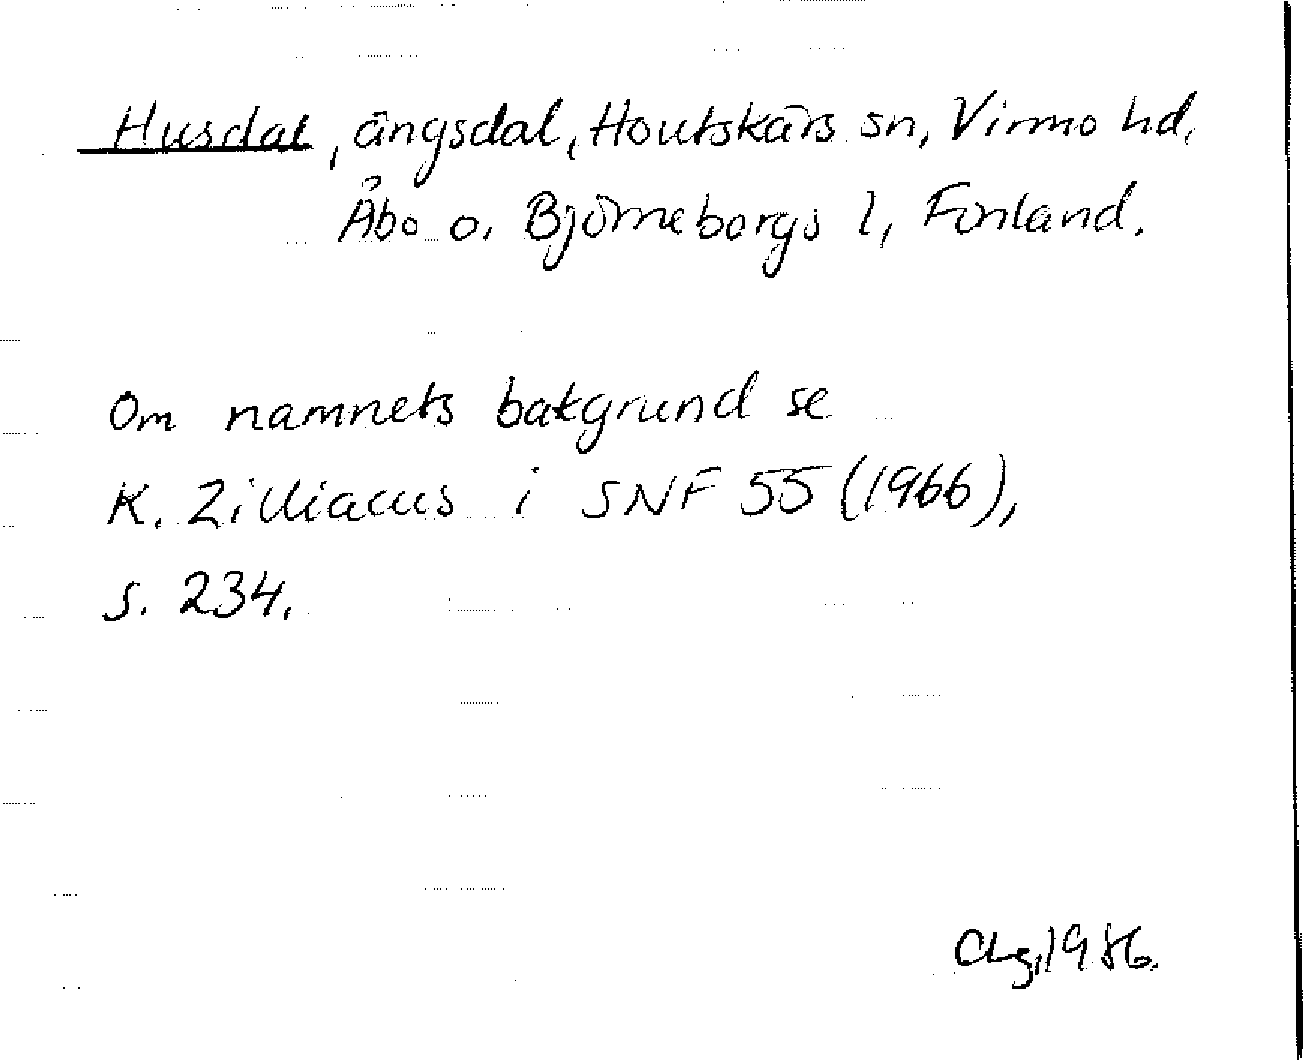 Husdal, ängsdal, Houtskärs sn, Virmo hd,
Åbo o. Björneborgs l, Finland.
Om namnets bakgrund se
K. Zilliacus i SNF 55 (1966),
s. 234.
1986.